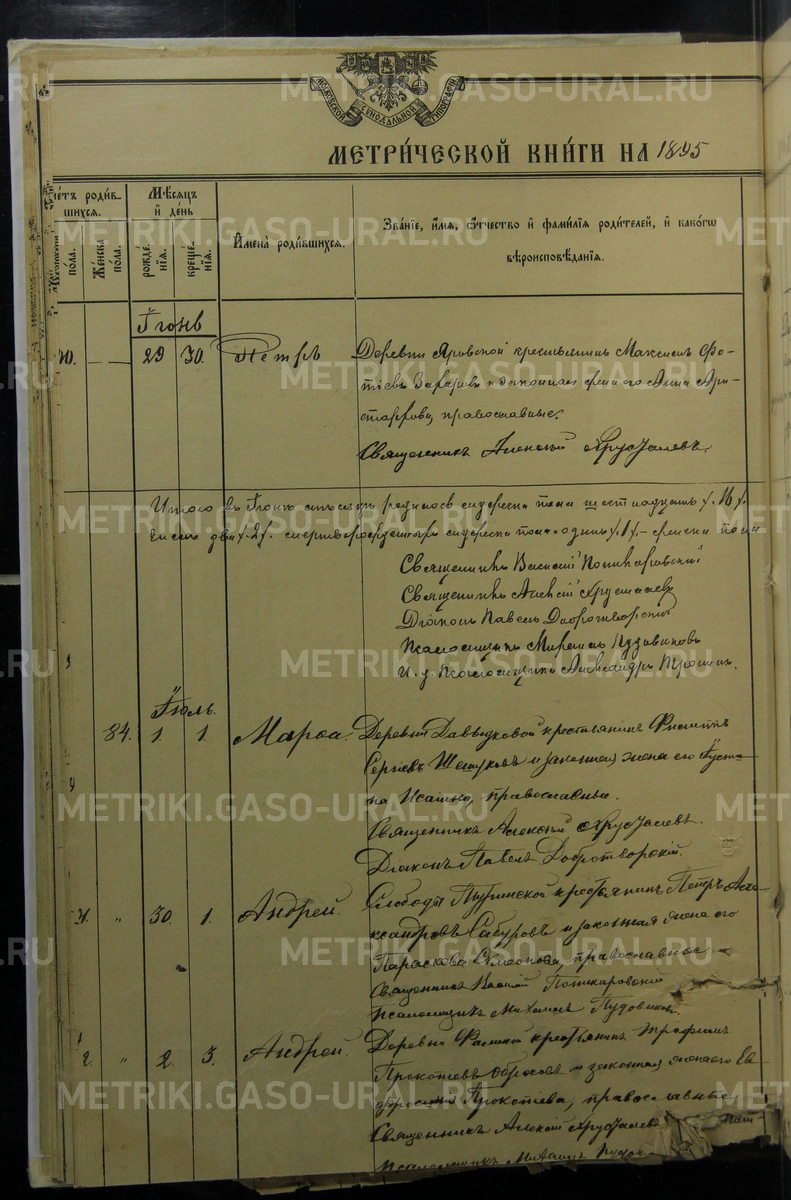 МОСКОВСКОЙ СѴНОДАЛЬНОЙ ТИПОГРАФІИ
МЕТРИЧЕСКОЙ КНИГИ НА 1895
Счетъ родившихся.
Мужеска пола.
Женска пола.
Мѣсяцъ и день
рожденія.
крещенія.
Имена родившихся.
Званіе, имя, отчество и фамилія родителей, и какогω вѣроисповѣданія.
Іюнь
29 30. Петръ
Деревни Яровской крестьянинъ Максимъ Фо-
тіевъ Захаровъ и законная жена его Анна Ари-
стархова, православные.
Священникъ Алексій Хрусталевъ
Итого въ Іюнѣ мѣсяцѣ родилось мужеска пола шестнадцать /. 16 /.
женска пола
Священникъ Василій Поликаровскій
Священникъ Алексій Хрусталевъ
Діаконъ Павелъ Добротворскій
Псаломщикъ Михаилъ Пудовиковъ
И. д. Псаломщика Александръ
Іюль.
84. 1. 1. Марѳа.
Деревни Давыдковой крестьянинъ Филиппъ
Сергіевъ и законная жена его Іуста-
на Исаіина, православные.
Священникъ Алексій Хрусталевъ.
Діаконъ Павелъ Добротворскій.
" 30. 1. Андрей.
Слободы крестьянинъ Петръ Але-
ксандровъ Сабуровъ и законная жена его
Параскева Симеонова, православные
Священникъ Василій Поликаровскій
Псаломщикъ Михаилъ Пудовиковъ
2. " 2. 3. Андрей.
Деревни крестьянинъ Трофимъ
Прокопіевъ Обросовъ и законная жена его Ев-
фросинія Прокопіева, православные
Священникъ Алексій Хрусталевъ
Псаломщикъ Михаилъ
METRIKI.GASO-URAL.RU